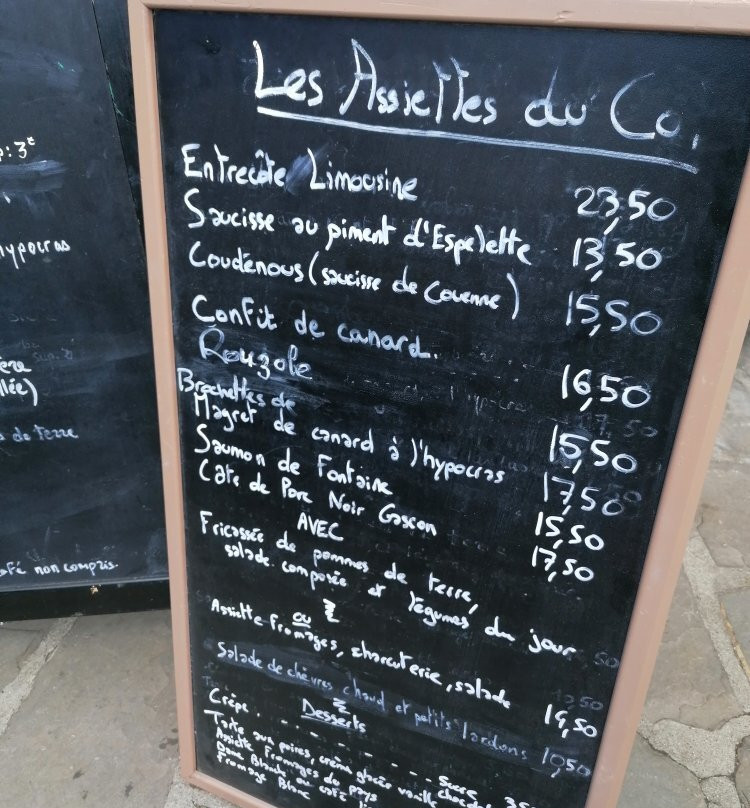 p: 3€
hypocras
ère
llée)
de terre
café non compris.
Les Assiettes du Co.
Entrecôte Limousine 23,50
Saucisse au piment d'Espelette 13,50
Coudénous (saucisse de Couenne) 15,50
Confit de canard. 16,50
Rouzole 15,50
Brochettes de
Magret de canard à l'hypocras 17,50
Saumon de Fontaine 15,50
Côte de Porc Noir Gascon 17,50
AVEC
Fricassée de pommes de terre,
salade composée et légumes du jour
ou
Assiette fromages, charcuterie, salade 14,50
Salade de chèvres chaud et petits lardons 10,50
Desserts
Crêpe
Tarte aux poires, crème glacée vanille
Assiette Fromages du pays
Dame Blanche ou café
Fromage Blanc